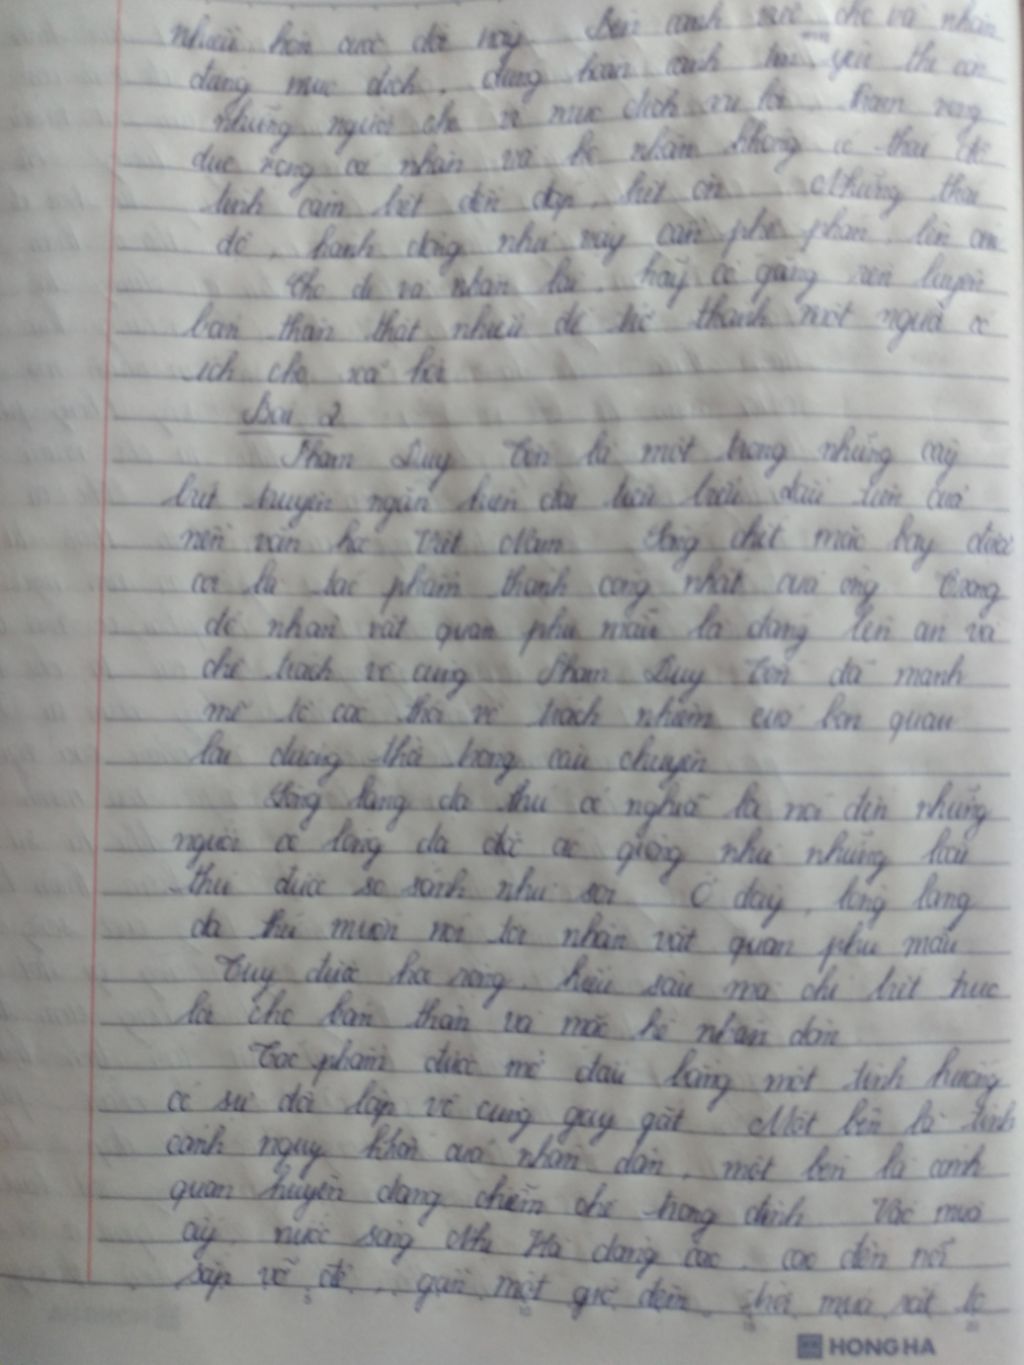 nhiều hơn cuộc đời này. Bên cạnh cho và nhận
đúng mục đích, đúng hoàn cảnh thì còn
những người cho vì mục đích vụ lợi, tham vọng
dục vọng cá nhân và kẻ nhận không có thái độ
tình cảm biết đền đáp, biết ơn. Những thái
độ, hành động như vậy cần phê phán, lên án
Cho đi và nhận lại, hãy cố gắng rèn luyện
bản thân thật nhiều để trở thành một người có
ích cho xã hội
Bài 2
Phạm Duy Tốn là một trong những cây
bút truyện ngắn hiện đại đầu tiên của
nền văn học Việt Nam. Sống chết mặc bay được
coi là tác phẩm thành công nhất của ông. Trong
đó nhân vật quan phụ mẫu là đáng lên án và
chê trách vô cùng. Phạm Duy Tốn đã mạnh
mẽ tố cáo thói vô trách nhiệm của bọn quan
lại đương thời trong câu chuyện
lòng lang dạ thú có nghĩa là nói đến những
người có lòng dạ độc ác giống như những loài
thú được so sánh như sói. Ở đây, lòng lang
dạ thú muốn nói tới nhân vật quan phụ mẫu
Tuy được học rộng, hiểu sâu mà chỉ biết trục
lợi cho bản thân và mặc kệ nhân dân
Tác phẩm được mở đầu bằng một tình huống
có sự đối lập vô cùng gay gắt. Một bên là tình
cảnh nguy khốn của nhân dân, một bên là cảnh
quan huyện đang chễm chệ trong đình. Vào mùa
ấy, nước sông Nhị Hà dâng cao, cao đến nỗi
sắp vỡ đê, gần một giờ đêm, trời mưa rất to
HONG HA